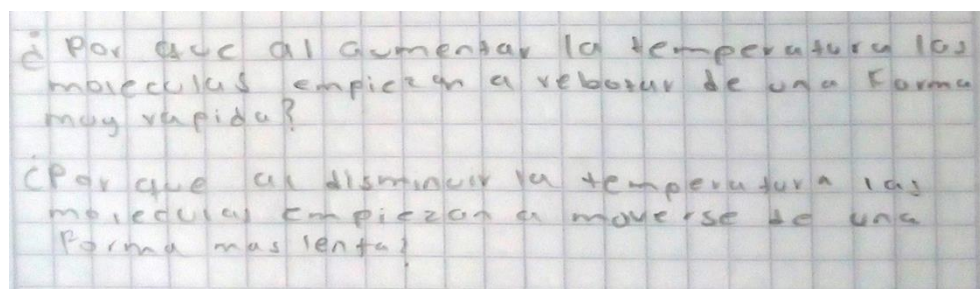 ¿Por que al aumentar la temperatura las
moleculas empiezan a rebotar de una Forma
muy rapida?
¿Por que al disminuir la temperatura las
moleculas empiezan a moverse de una
Forma mas lenta?